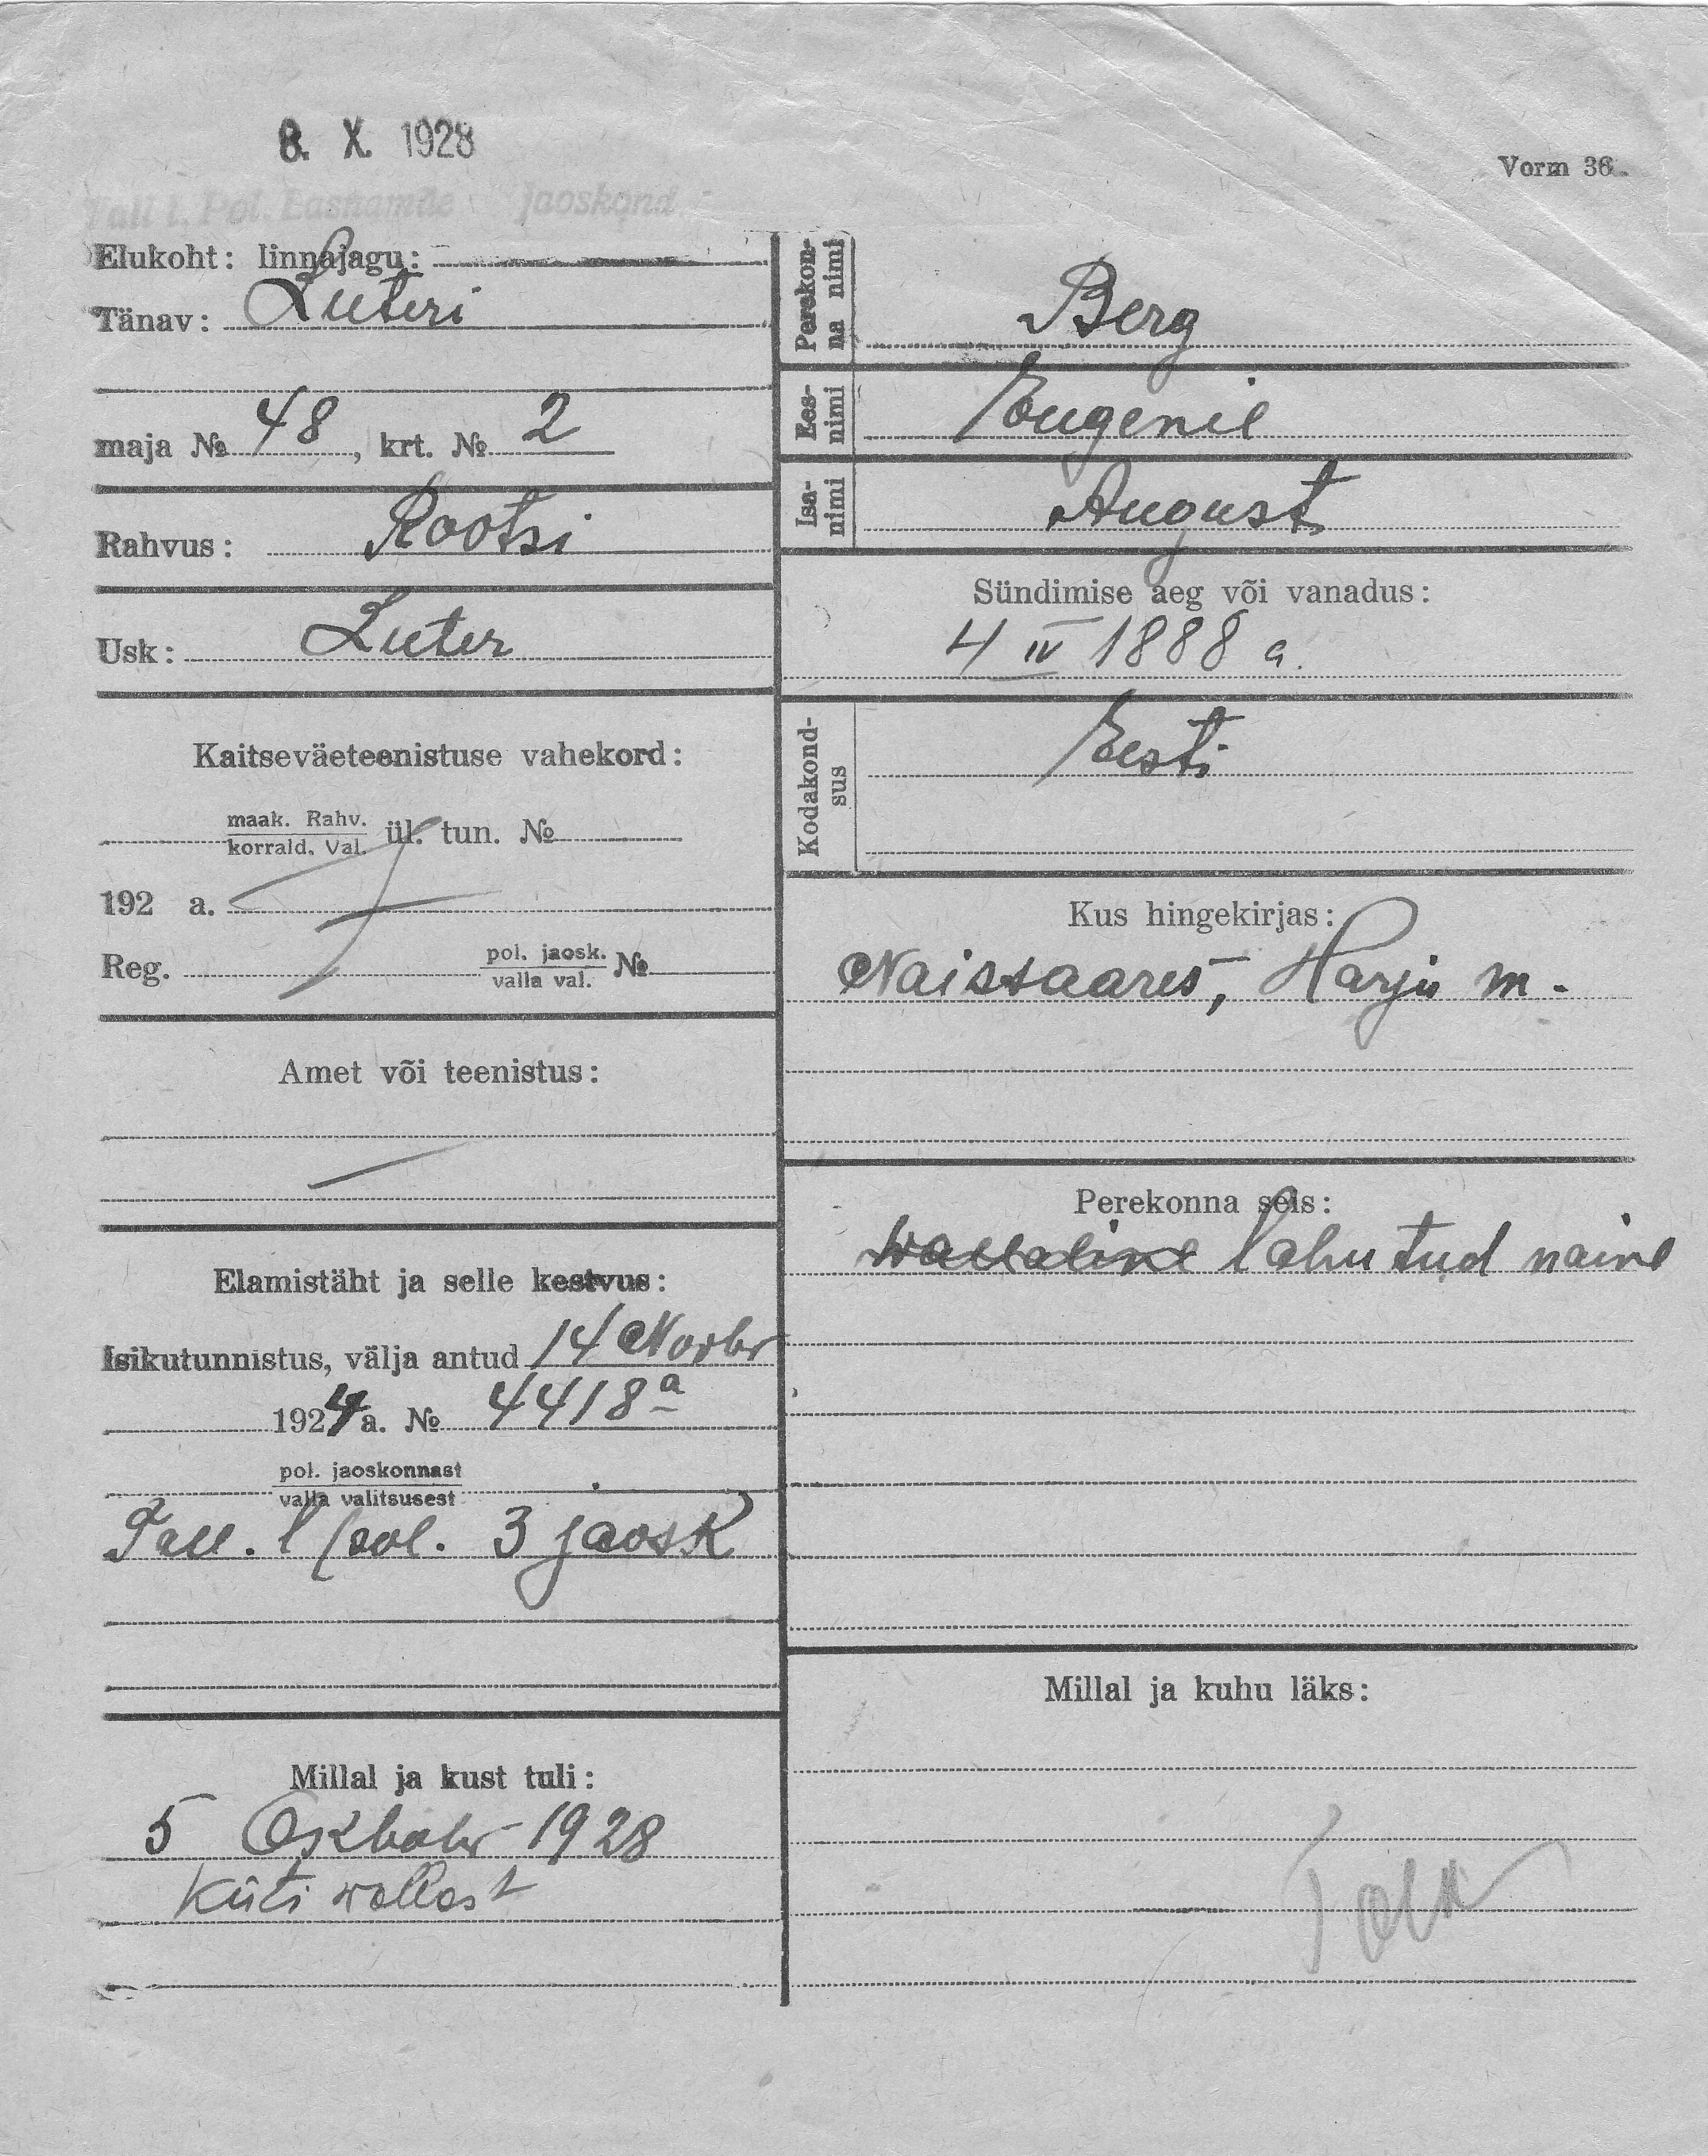 8. X. 1928
Vorm 36.
Tall l. Pol. Lasnamäe jaoskond
Elukoht: linnajagu:
Tänav: Luteri
maja № 48, krt. № 2
Rahvus: Rootsi
Usk: Luter
Kaitseväeteenistuse vahekord:
maak. Rahv.
korrald. Val. ül. tun. №
192 a.
Reg. pol. jaosk. №
valla val.
Amet või teenistus:
Elamistäht ja selle kestvus:
Isikutunnistus, välja antud 14 Novbr
1924 a. № 4418a
pol. jaoskonnast
valla valitsusest
Tall. l pol. 3 jaosk
Millal ja kust tuli:
5 Oktbobr 1928
Küti vallast
Perekon-
na nimi
Berg
Ees-
nimi
Eugenie
Isa-
nimi
August
Sündimise aeg või vanadus:
4 IV 1888 a.
Kodakond-
sus
Eesti
Kus hingekirjas:
Naissaares, Harju m.
Perekonna seis:
lahutud naine
Millal ja kuhu läks: